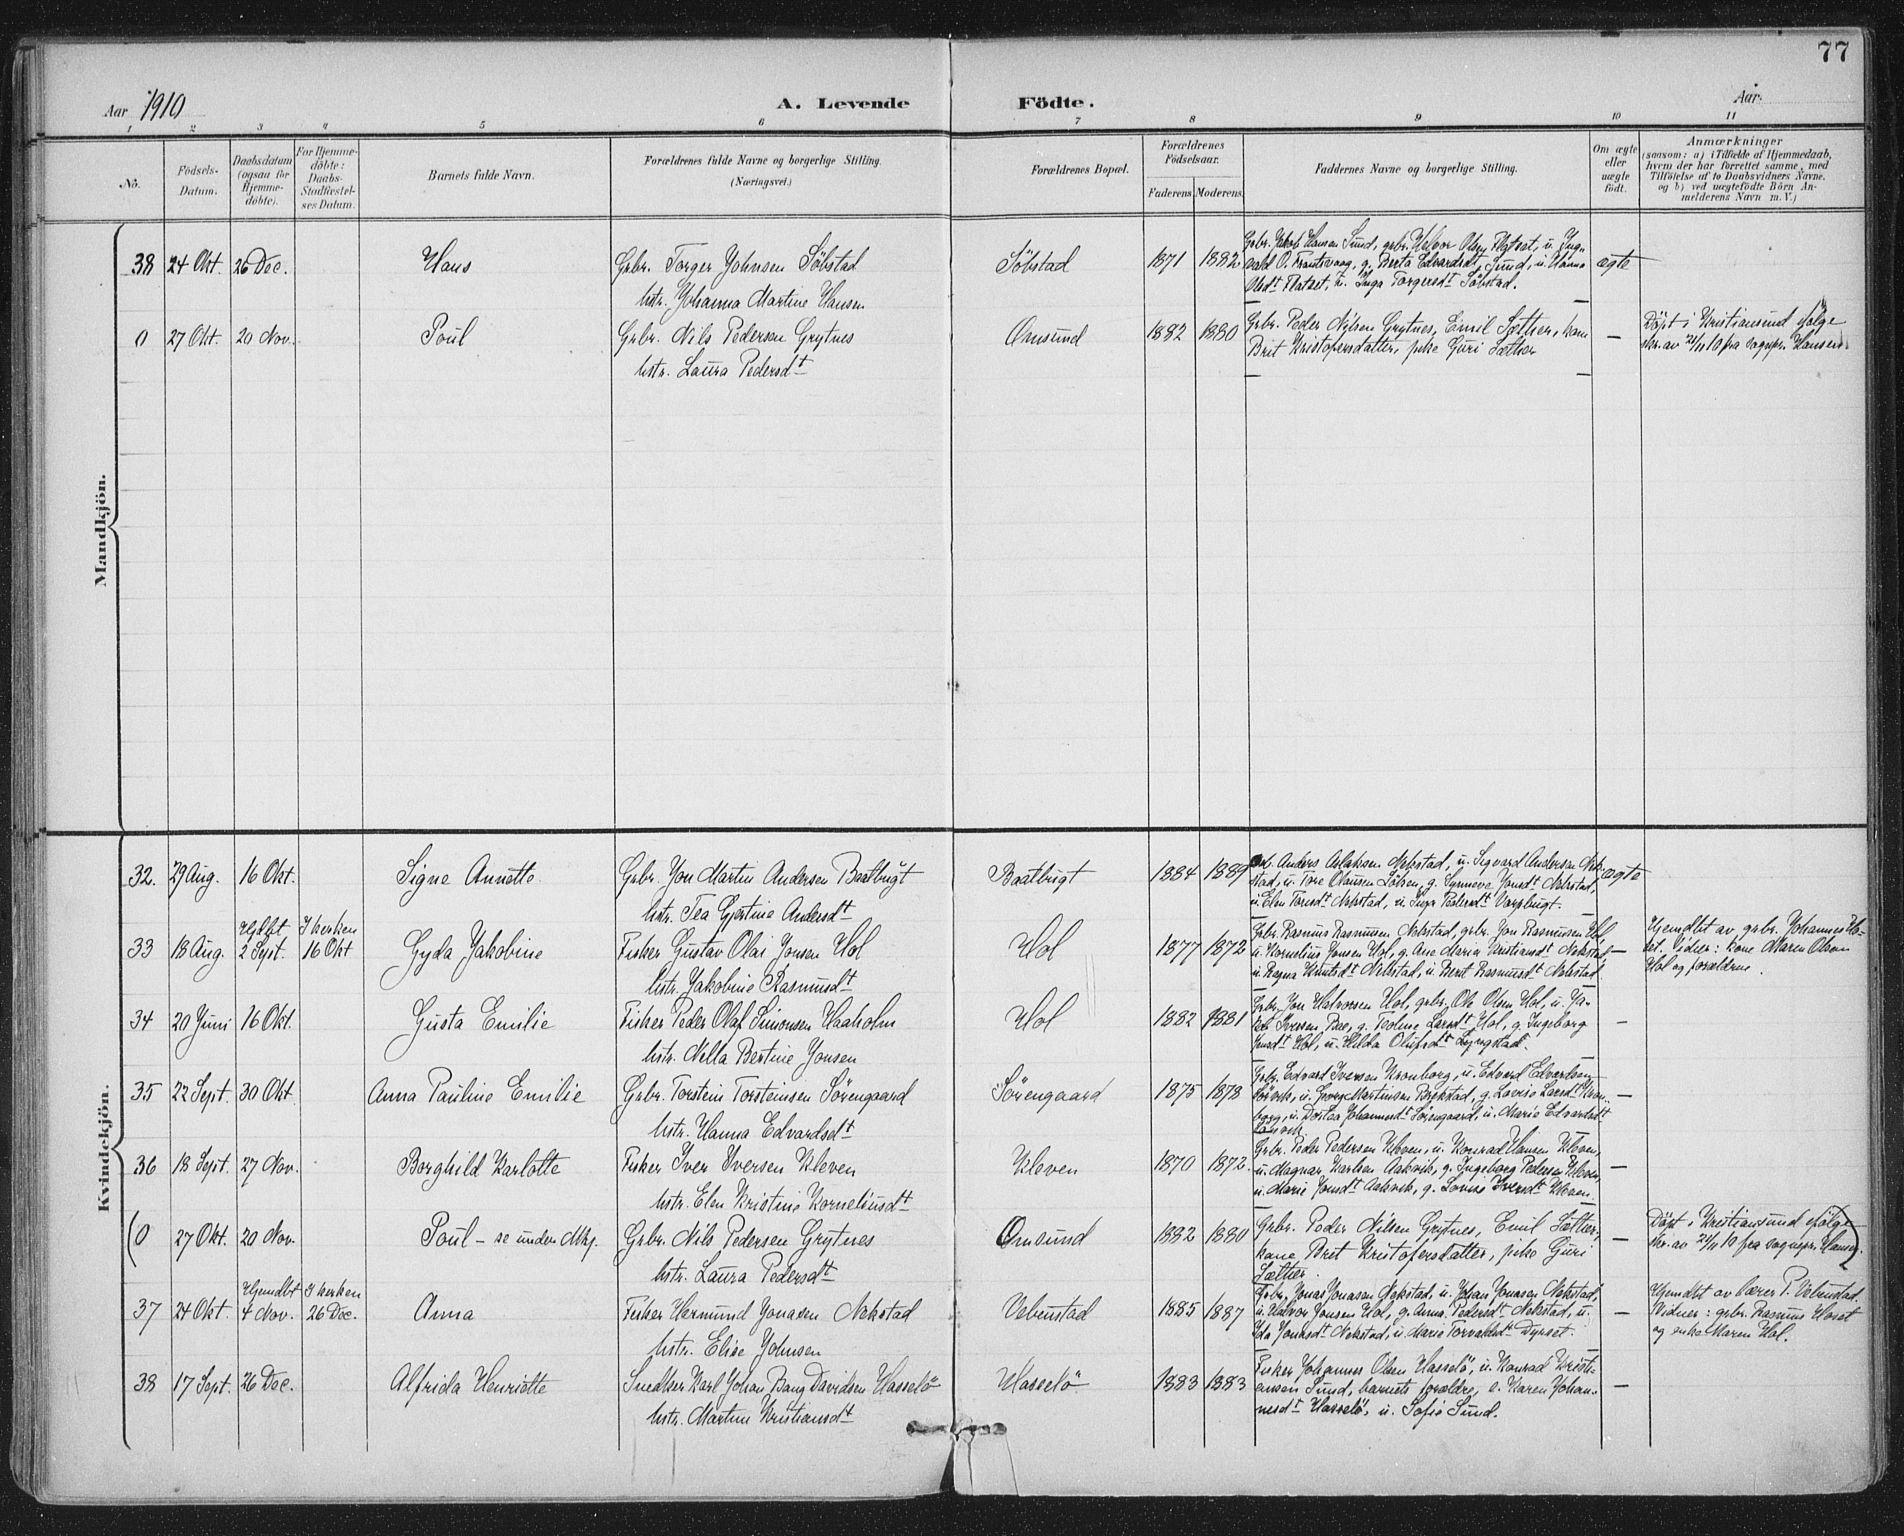 77
Aar 1910
A. Levende Födte.
Aar
1 2 3 4 5 6 7 8 9 10 11
No.
Födsels-
Datum.
Daabsdatum
(ogsaa for
Hjemme-
döbte).
For Hjemme-
döbte:
Daabs-
Stadfæstel-
ses Datum.
Barnets fulde Navn.
Forældrenes fulde Navne og borgerlige Stilling.
(Næringsvei.)
Forældrenes Bopæl.
Forældrenes
Födselsaar.
Faderens. Moderens.
Faddernes Navne og borgerlige Stilling.
Om ægte
eller
uægte
födt.
Anmærkninger
(saasom: a) i Tilfælde af Hjemmedaab,
hvem der har forrettet samme, med
Tilföielse af to Daabsvidners Navne,
og b) ved uægtefödte Börn An-
melderens Navn m. V.)
Mandkjön.
38 24 Okt. 26 Dec. Hans
Grbr. Torger Johnsen Söbstad
hstr. Johanna Martine Hansen
Söbstad 1871 1882
Grbr. Jakob Hansen Sund, grbr. Halvor Olsen Flatset, u. Ing-
vald O. , g. Berta Edvardsdt Sund, u. Hanna
Olsdt Flatset, u. Inga Torgersdt Söbstad.
ægte
0 27 Okt. 20 Nov. Poul
Grbr. Nils Pedersen Grytnes
hstr. Laura Pedersdt
Omsund 1882 1880
Grbr. Peder Nilsen Grytnes, Emil Sæther, kone
Brit Kristofersdatter, pike Guri Sæther
—
Döpt i Kristiansund ifölge
skr. av 21/11 10 fra sognepr. Hansen.
Kvindekjön.
32. 29 Aug. 16 Okt. Signe Annette
Grbr. Jon Martin Andersen Baatbugt
hstr. Tea Gjertine Andersdt
Baatbugt 1884 1889
Grb. Anders Aslaksen Nekstad, u. Sigvard Andersen Nek-
stad, u. Tore Olausen , g. Synneve Jonsdt Nekstad,
u. Elen Toresdt Nekstad, u. Inga Pedersdt Vaagbugt.
ægte
33 18 Aug. Hjdbt 2 Sept. I kirken 16 Okt Gyda Jakobine
Fisker Gustav Olai Jonsen Hol
hstr. Jakobine Rasmusdt
Hol 1877 1872
Grbr. Rasmus Rasmussen Nekstad, grbr. Jon Rasmussen Hol,
u. Kornelius Jonsen Hol, g. Ane Maria Kristiansdt Nekstad,
u. Ragna Knutsdt Nekstad, u. Berit Rasmusdt Nekstad.
—
Hjemdbt av grbr. Johannes Ho-
set. Vidner: kone Maren Olsen
Hol og forældrene.
34 20 Juni 16 Okt. Gusta Emilie
Fisker Peder Olaf Simonsen Haaholm
hstr. Nella Bertine Jonsen
Hol 1882 1881
Grbr. Jon Halvorsen Hol, grbr. Ole Olsen Hol, u. Ja-
kob Iversen Bae, g. Teoline Larsdt Hol, g. Ingeborg
Jonsdt Hol, u. Hilda Olufsdt Lyngstad.
—
35 22 Sept. 30 Okt. Anna Pauline Emilie
Grbr. Torstein Torsteinsen Sörengaard
hstr. Hanna Edvardsdt
Sörengaard 1875 1878
Grbr. Edvard Iversen Kronborg, u. Edvard Edvardsen
Sörvik, u. Georg Martinsen Brekstad, g. Lovise Larsdt Kron-
borg, u. Dortea Johannesdt Sörengaard, u. Marie Edvardsdt
Sörvik.
—
36 18 Sept. 27 Nov. Borghild Karlotte
Fisker Iver Iversen Kleven
hstr. Elen Kristine Korneliusdt
Kleven 1870 1872
Grbr. Peder Pedersen Kleven, u. Konrad Hansen Kleven,
u. Magnar Karlsen Aakvik, g. Ingeborg Pedersen Kleven,
u. Marie Jonsdt Aakvik, g. Lovise Iversdt Kleven.
—
(0 27 Okt. 20 Nov. Poul – se under Mkj.
Grbr. Nils Pedersen Grytnes
hstr. Laura Pedersdt
Omsund 1882 1880
Grbr. Peder Nilsen Grytnes, Emil Sæther,
kone Brit Kristofersdatter, pike Guri
Sæther.
—
Döpt i Kristiansund ifölge
skr. av 21/11 10 fra sognepr. Hansen.)
37 24 Okt. Hjemdbt 4 Nov. I kirken 26 Dec. Anna
Fisker Hermund Jonasen Nekstad
hstr. Elise Johnsen
Vebenstad 1885 1887
Grbr. Jonas Jonasen Nekstad, u. Johan Jonasen Nekstad,
u. Halvor Jonsen Hol, g. Anna Pedersdt Nekstad, u.
Ida Jonasdt Nekstad, u. Marie Torvaldsdt Dyrset.
—
Hjemdbt av lærer P. Vebenstad.
Vidner: grbr. Rasmus Hoset
og enke Maren Hol.
38 17 Sept. 26 Dec. Alfrida Henriette
Snedker Karl Johan Bang Davidsen Hasselö
hstr. Martine Kristiansdt
Hasselö 1883 1883
Fisker Johannes Olsen Hasselö, u. Konrad Kristi-
ansen Sund, barnets forældre, e. Karen Johan-
nesdt Hasselö, u. Sofie Sund.
—